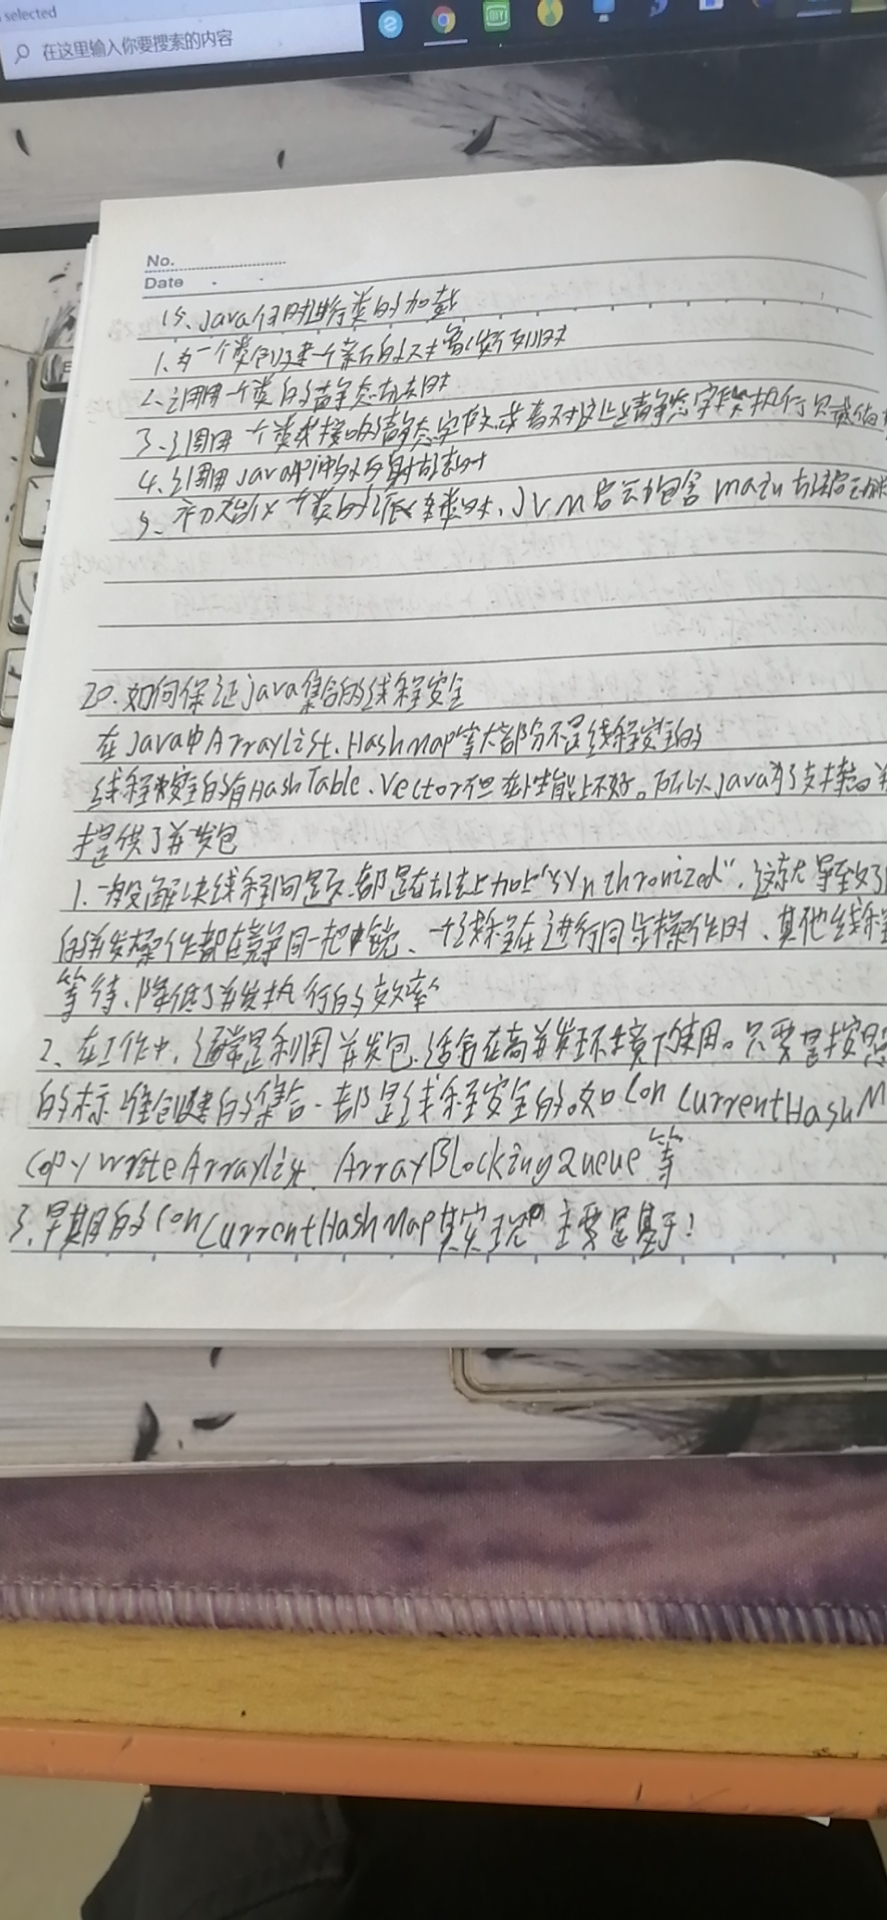 selected
在这里输入你要搜索的内容
No.
Date
19、Java何时进行类的加载
1、为一个类创建一个新的对象
2、调用一个类的静态方法时
3、调用一个类或接口的静态字段或者对这些静态字段执行
4、调用Java API中的反射方法时
5、初始化一个类的时,JVM启动包含main方法
20.如何保证java集合的线程安全
在Java中ArrayList、HashMap等大部分不是线程安全的
线程安全的有HashTable、Vector但在性能上不好。所以Java为了支持
提供了并发包
1.一般解决线程问题都是在方法上加上"synthronized",这就导致了
的并发操作都在竞争同一把锁、一个线程在进行同步操作时、其他线程
等待、降低了并发执行的效率
2、在工作中,通常是利用并发包、适合在高并发环境下使用。只要是按照
的标准创建的集合、都是线程安全的。如ConCurrentHashM
CopyWriteArraylist、ArrayBlockingQueue等
3、早期的ConCurrentHashMap其实现 主要是基于!